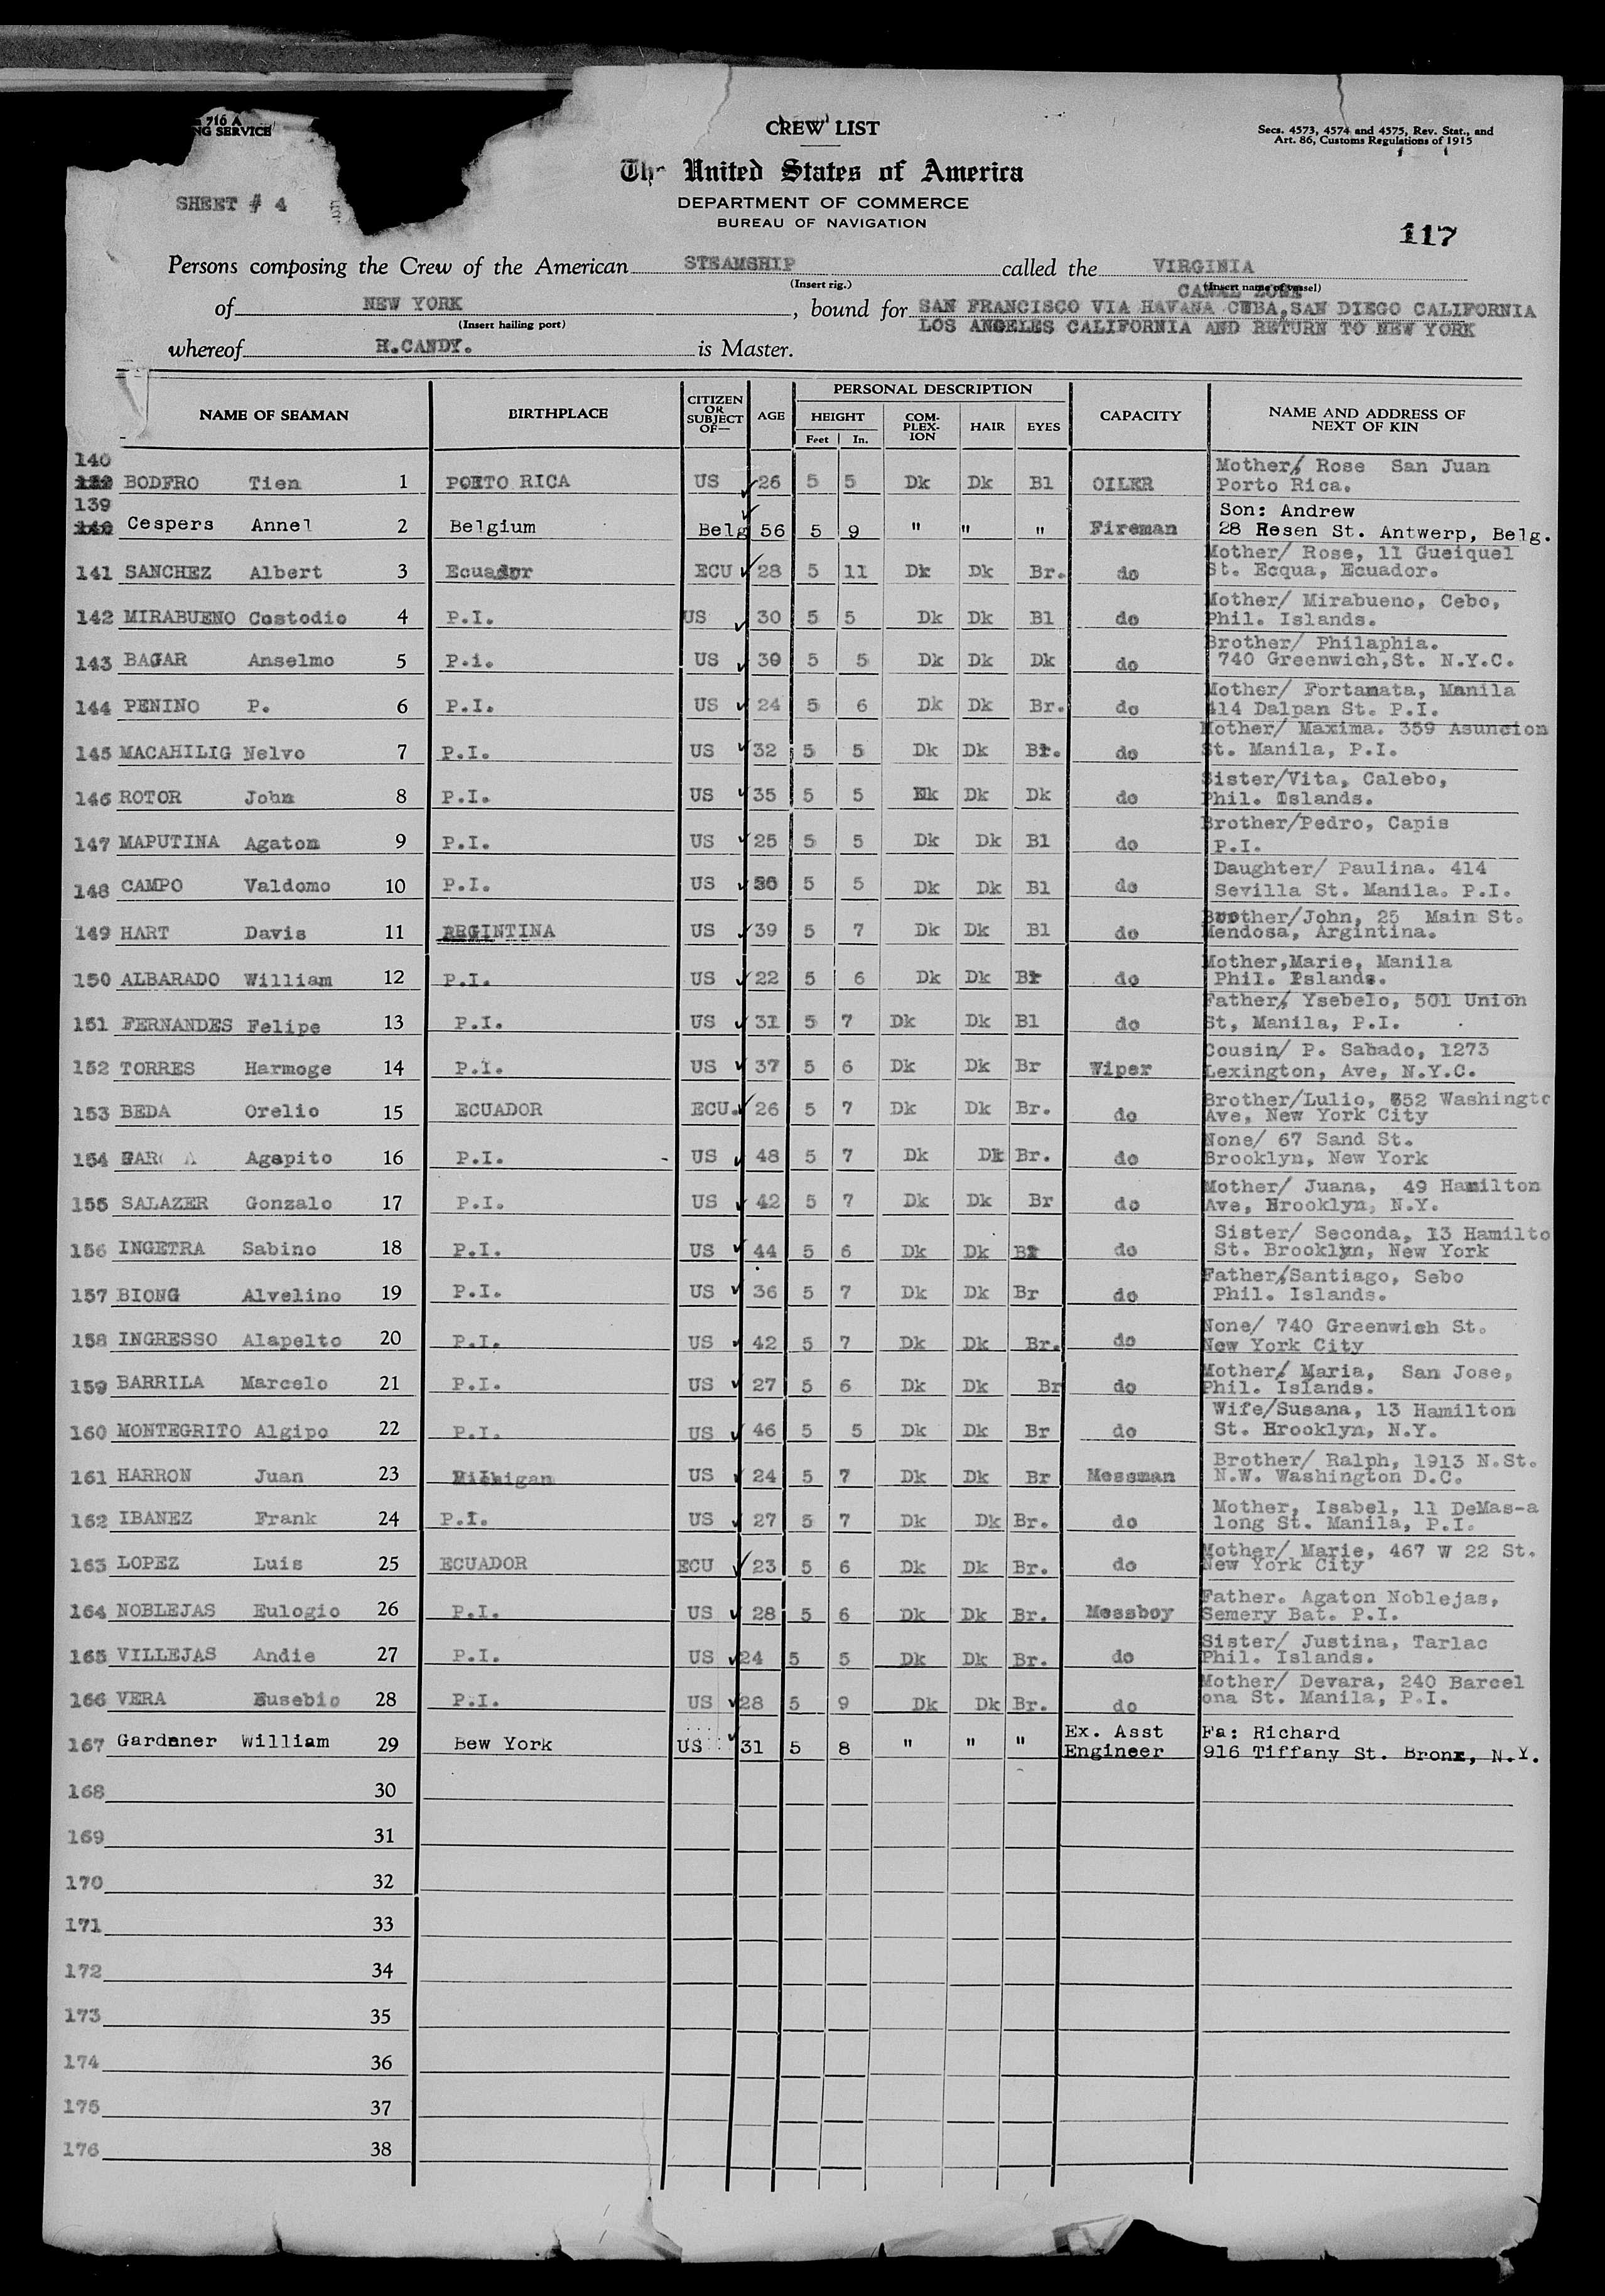 716 A
NG SERVICE
CREW LIST
Secs. 4573, 4574 and 4575, Rev. Stat., and
Art. 86, Customs Regulations of 1915
The United States of America
SHEET # 4
DEPARTMENT OF COMMERCE
BUREAU OF NAVIGATION
117
Persons composing the Crew of the American STEAMSHIP called the VIRGINIA
(Insert rig.) (Insert name of vessel)
CANAL ZONE
of NEW YORK, bound for SAN FRANCISCO VIA HAVANA CUBA, SAN DIEGO CALIFORNIA
(Insert hailing port) LOS ANGELES CALIFORNIA AND RETURN TO NEW YORK
whereof H.CANDY. is Master.
NAME OF SEAMAN BIRTHPLACE CITIZEN OR SUBJECT OF— AGE PERSONAL DESCRIPTION CAPACITY NAME AND ADDRESS OF NEXT OF KIN
HEIGHT COM-PLEX-ION HAIR EYES
Feet In.
140 Mother/ Rose San Juan
BODFRO Tien 1 PORTO RICA US 26 5 5 Dk Dk Bl OILER Porto Rica.
139 Son: Andrew
Cespers Annel 2 Belgium Belg 56 5 9 " " " Fireman 28 Resen St. Antwerp, Belg.
Mother/ Rose, 11 Gueiquel
141 SANCHEZ Albert 3 Ecuador ECU 28 5 11 Dk Dk Br. do St. Ecqua, Ecuador.
Mother/ Mirabueno, Cebo,
142 MIRABUENO Costodio 4 P.I. US 30 5 5 Dk Dk Bl do Phil. Islands.
Brother/ Philaphia.
143 BAGAR Anselmo 5 P.i. US 30 5 5 Dk Dk Dk do 740 Greenwich,St. N.Y.C.
Mother/ Fortanata, Manila
144 PENINO P. 6 P.I. US 24 5 6 Dk Dk Br. do 414 Dalpan St. P.I.
Mother/ Maxima. 359 Asuncion
145 MACAHILIG Nelvo 7 P.I. US 32 5 5 Dk Dk Br. do St. Manila, P.I.
Sister/Vita, Calebo,
146 ROTOR John 8 P.I. US 35 5 5 Dk Dk Dk do Phil. Islands.
Brother/Pedro, Capis
147 MAPUTINA Agaton 9 P.I. US 25 5 5 Dk Dk Bl do P.I.
Daughter/ Paulina. 414
148 CAMPO Valdomo 10 P.I. US 5 5 Dk Dk Bl do Sevilla St. Manila. P.I.
Brother/John, 25 Main St.
149 HART Davis 11 ARGINTINA US 39 5 7 Dk Dk Bl do Mendosa, Argintina.
Mother,Marie, Manila
150 ALBARADO William 12 P.I. US 22 5 6 Dk Dk Br do Phil. Islands.
Father/ Ysebelo, 501 Union
151 FERNANDES Felipe 13 P.I. US 31 5 7 Dk Dk Bl do St, Manila, P.I.
Cousin/ P. Sabado, 1273
152 TORRES Harmoge 14 P.I. US 37 5 6 Dk Dk Br Wiper Lexington, Ave, N.Y.C.
Brother/Lulio, 552 Washingto
153 BEDA Orelio 15 ECUADOR ECU. 26 5 7 Dk Dk Br. do Ave, New York City
None/ 67 Sand St.
154 GARC A Agapito 16 P.I. US 48 5 7 Dk Dk Br. do Brooklyn, New York
Mother/ Juana, 49 Hamilton
155 SALAZER Gonzalo 17 P.I. US 42 5 7 Dk Dk Br do Ave, Brooklyn, N.Y.
Sister/ Seconda, 13 Hamilto
156 INGETRA Sabino 18 P.I. US 44 5 6 Dk Dk do St. Brooklyn, New York
Father/Santiago, Sebo
157 BIONG Alvelino 19 P.I. US 36 5 7 Dk Dk Br do Phil. Islands.
None/ 740 Greenwish St.
158 INGRESSO Alapelto 20 P.I. US 42 5 7 Dk Dk Br. do New York City
Mother/ Maria, San Jose,
159 BARRILA Marcelo 21 P.I. US 27 5 6 Dk Dk Br do Phil. Islands.
Wife/Susana, 13 Hamilton
160 MONTEGRITO Algipo 22 P.I. US 46 5 5 Dk Dk Br do St. Brooklyn, N.Y.
Brother/ Ralph, 1913 N.St.
161 HARRON Juan 23 Michigan US 24 5 7 Dk Dk Br Messman N.W. Washington D.C.
Mother, Isabel, 11 DeMas-a
162 IBANEZ Frank 24 P.I. US 27 5 7 Dk Dk Br. do long St. Manila, P.I.
Mother/ Marie, 467 W 22 St.
163 LOPEZ Luis 25 ECUADOR ECU 23 5 6 Dk Dk Br. do New York City
Father. Agaton Noblejas,
164 NOBLEJAS Eulogio 26 P.I. US 28 5 6 Dk Dk Br. Messboy Semery Bat. P.I.
Sister/ Justina, Tarlac
165 VILLEJAS Andie 27 P.I. US 24 5 5 Dk Dk Br. do Phil. Islands.
Mother/ Devara, 240 Barcel
166 VERA Eusebio 28 P.I. US 28 5 9 Dk Dk Br. do ona St. Manila, P.I.
Ex. Asst Fa: Richard
167 Gardener William 29 Bew York US 31 5 8 " " " Engineer 916 Tiffany St. Bronx, N.Y.
168 30
169 31
170 32
171 33
172 34
173 35
174 36
175 37
176 38